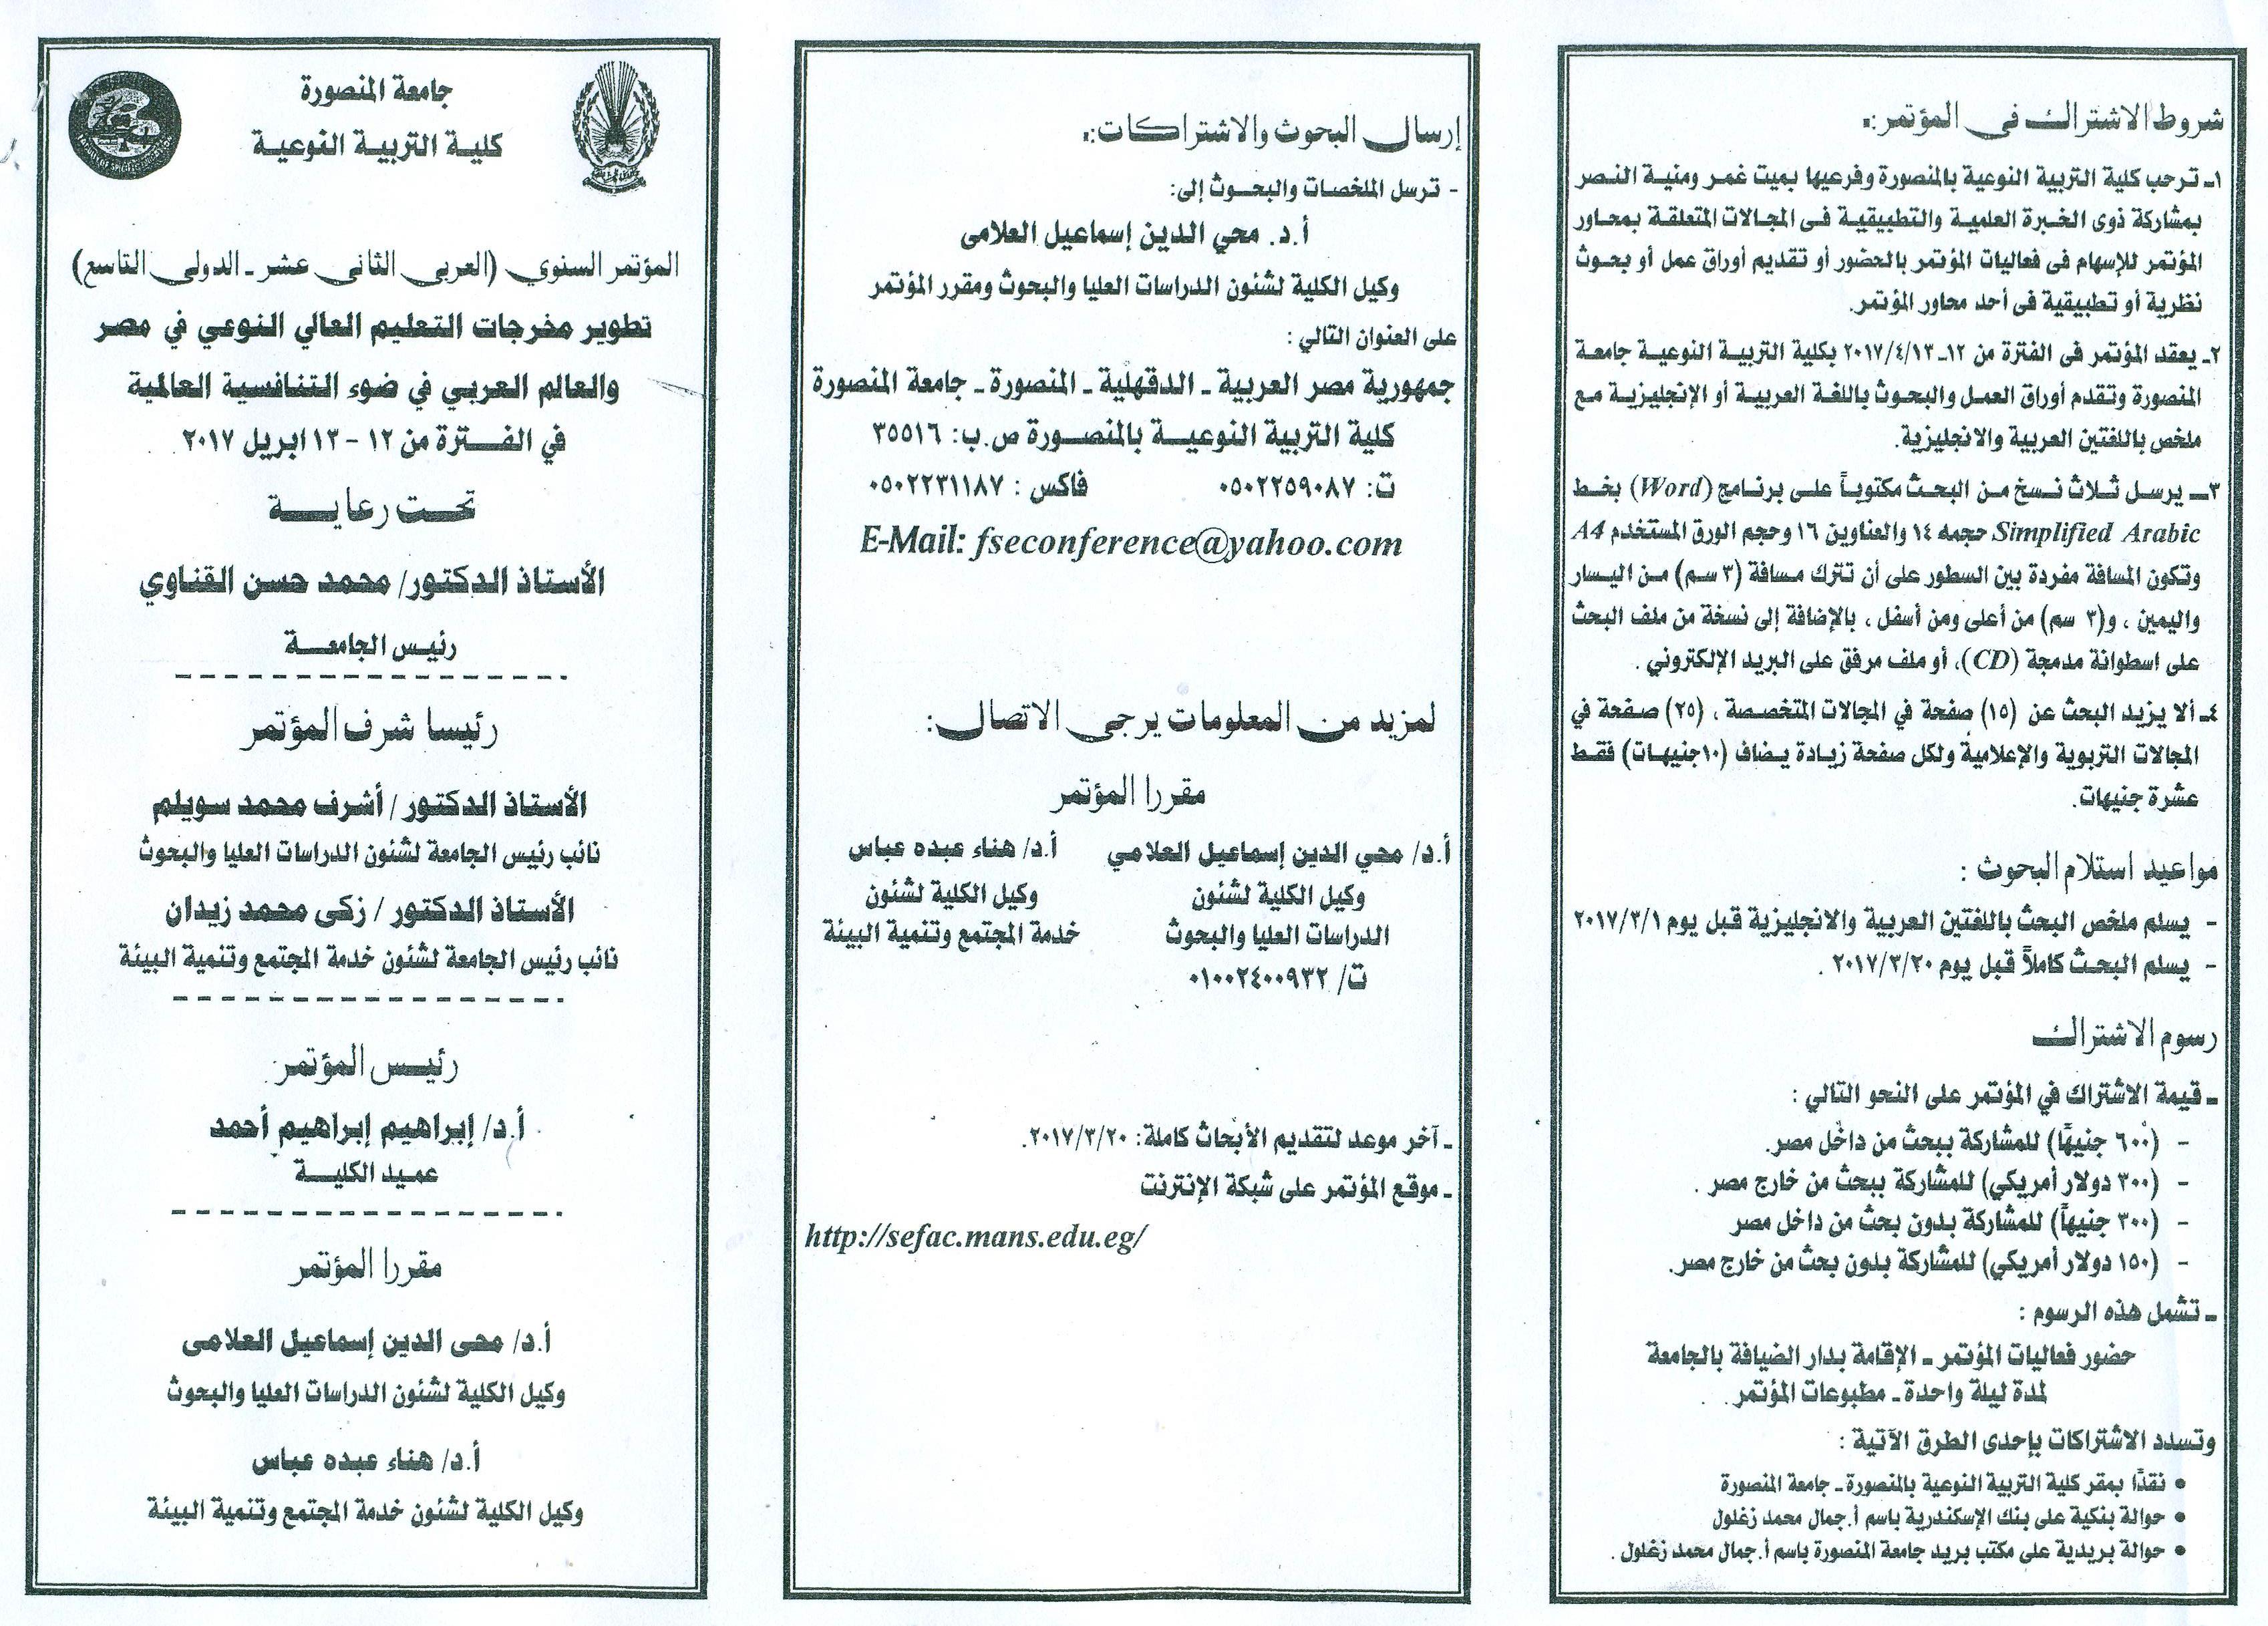 شروط الاشتراك فى المؤتمر:
١ـ ترحب كلية التربية النوعية بالمنصورة وفرعيها بميت غمر ومنية النصر
بمشاركة ذوى الخبرة العلمية والتطبيقية فى المجالات المتعلقة بمحاور
المؤتمر للإسهام فى فعاليات المؤتمر بالحضور أو تقديم أوراق عمل أو بحوث
نظرية أو تطبيقية فى أحد محاور المؤتمر.
٢ـ يعقد المؤتمر فى الفترة من ١٢ـ ٢٠١٧/٤/١٣ بكلية التربية النوعية جامعة
المنصورة وتقدم أوراق العمل والبحوث باللغة العربية أو الإنجليزية مع
ملخص باللغتين العربية والانجليزية.
٣ـ يرسل ثلاث نسخ من البحث مكتوباً على برنامج (Word) بخط
Simplified Arabic حجمه ١٤ والعناوين ١٦ وحجم الورق المستخدم A4
وتكون المسافة مفردة بين السطور على أن تترك مسافة (٣ سم) من اليسار
واليمين ، و(٣ سم) من أعلى ومن أسفل ، بالإضافة إلى نسخة من ملف البحث
على اسطوانة مدمجة (CD)، أو ملف مرفق على البريد الإلكتروني .
٤ـ ألا يزيد البحث عن (١٥) صفحة في المجالات المتخصصة ، (٢٥) صفحة في
المجالات التربوية والإعلامية ولكل صفحة زيادة يضاف (١٠جنيهات) فقط
عشرة جنيهات.
مواعيد استلام البحوث :
- يسلم ملخص البحث باللغتين العربية والانجليزية قبل يوم ٢٠١٧/٣/١
- يسلم البحث كاملاً قبل يوم ٢٠١٧/٣/٢٠ .
رسوم الاشتراك
ـ قيمة الاشتراك في المؤتمر على النحو التالي :
- (٦٠٠ جنيهًا) للمشاركة ببحث من داخل مصر.
- (٣٠٠ دولار أمريكي) للمشاركة ببحث من خارج مصر .
- (٣٠٠ جنيهاً) للمشاركة بدون بحث من داخل مصر
- (١٥٠ دولار أمريكي) للمشاركة بدون بحث من خارج مصر.
ـ تشمل هذه الرسوم :
حضور فعاليات المؤتمر ـ الإقامة بدار الضيافة بالجامعة
لمدة ليلة واحدة ـ مطبوعات المؤتمر .
وتسدد الاشتراكات بإحدى الطرق الآتية :
• نقدًا بمقر كلية التربية النوعية بالمنصورة ـ جامعة المنصورة
• حوالة بنكية على بنك الإسكندرية باسم أ.جمال محمد زغلول
• حوالة بريدية على مكتب بريد جامعة المنصورة باسم أ.جمال محمد زغلول .
إرسال البحوث والاشتراكات:
- ترسل الملخصات والبحوث إلى:
أ.د. محي الدين إسماعيل العلامى
وكيل الكلية لشئون الدراسات العليا والبحوث ومقرر المؤتمر
على العنوان التالي :
جمهورية مصر العربية ـ الدقهلية ـ المنصورة ـ جامعة المنصورة
كلية التربية النوعية بالمنصورة ص.ب: ٣٥٥١٦
ت: ٠٥٠٢٢٥٩٠٨٧ فاكس : ٠٥٠٢٢٣١١٨٧
E-Mail: fseconference@yahoo.com
لمزيد من المعلومات يرجى الاتصال:
مقررا المؤتمر
أ.د/ محي الدين إسماعيل العلامي أ.د/ هناء عبده عباس
وكيل الكلية لشئون وكيل الكلية لشئون
الدراسات العليا والبحوث خدمة المجتمع وتنمية البيئة
ت/ ٠١٠٠٢٤٠٠٩٣٢
ـ آخر موعد لتقديم الأبحاث كاملة: ٢٠١٧/٣/٢٠.
ـ موقع المؤتمر على شبكة الإنترنت
http://sefac.mans.edu.eg/
جامعة المنصورة
كلية التربية النوعية
المؤتمر السنوي (العربى الثانى عشر ـ الدولى التاسع)
تطوير مخرجات التعليم العالي النوعي في مصر
والعالم العربي في ضوء التنافسية العالمية
في الفترة من ١٢ – ١٣ ابريل ٢٠١٧
تحت رعاية
الأستاذ الدكتور/ محمد حسن القناوي
رئيس الجامعة
رئيسا شرف المؤتمر
الأستاذ الدكتور / أشرف محمد سويلم
نائب رئيس الجامعة لشئون الدراسات العليا والبحوث
الأستاذ الدكتور / زكى محمد زيدان
نائب رئيس الجامعة لشئون خدمة المجتمع وتنمية البيئة
رئيس المؤتمر
أ.د/ إبراهيم إبراهيم أحمد
عميد الكلية
مقررا المؤتمر
أ.د/ محى الدين إسماعيل العلامى
وكيل الكلية لشئون الدراسات العليا والبحوث
أ.د/ هناء عبده عباس
وكيل الكلية لشئون خدمة المجتمع وتنمية البيئة